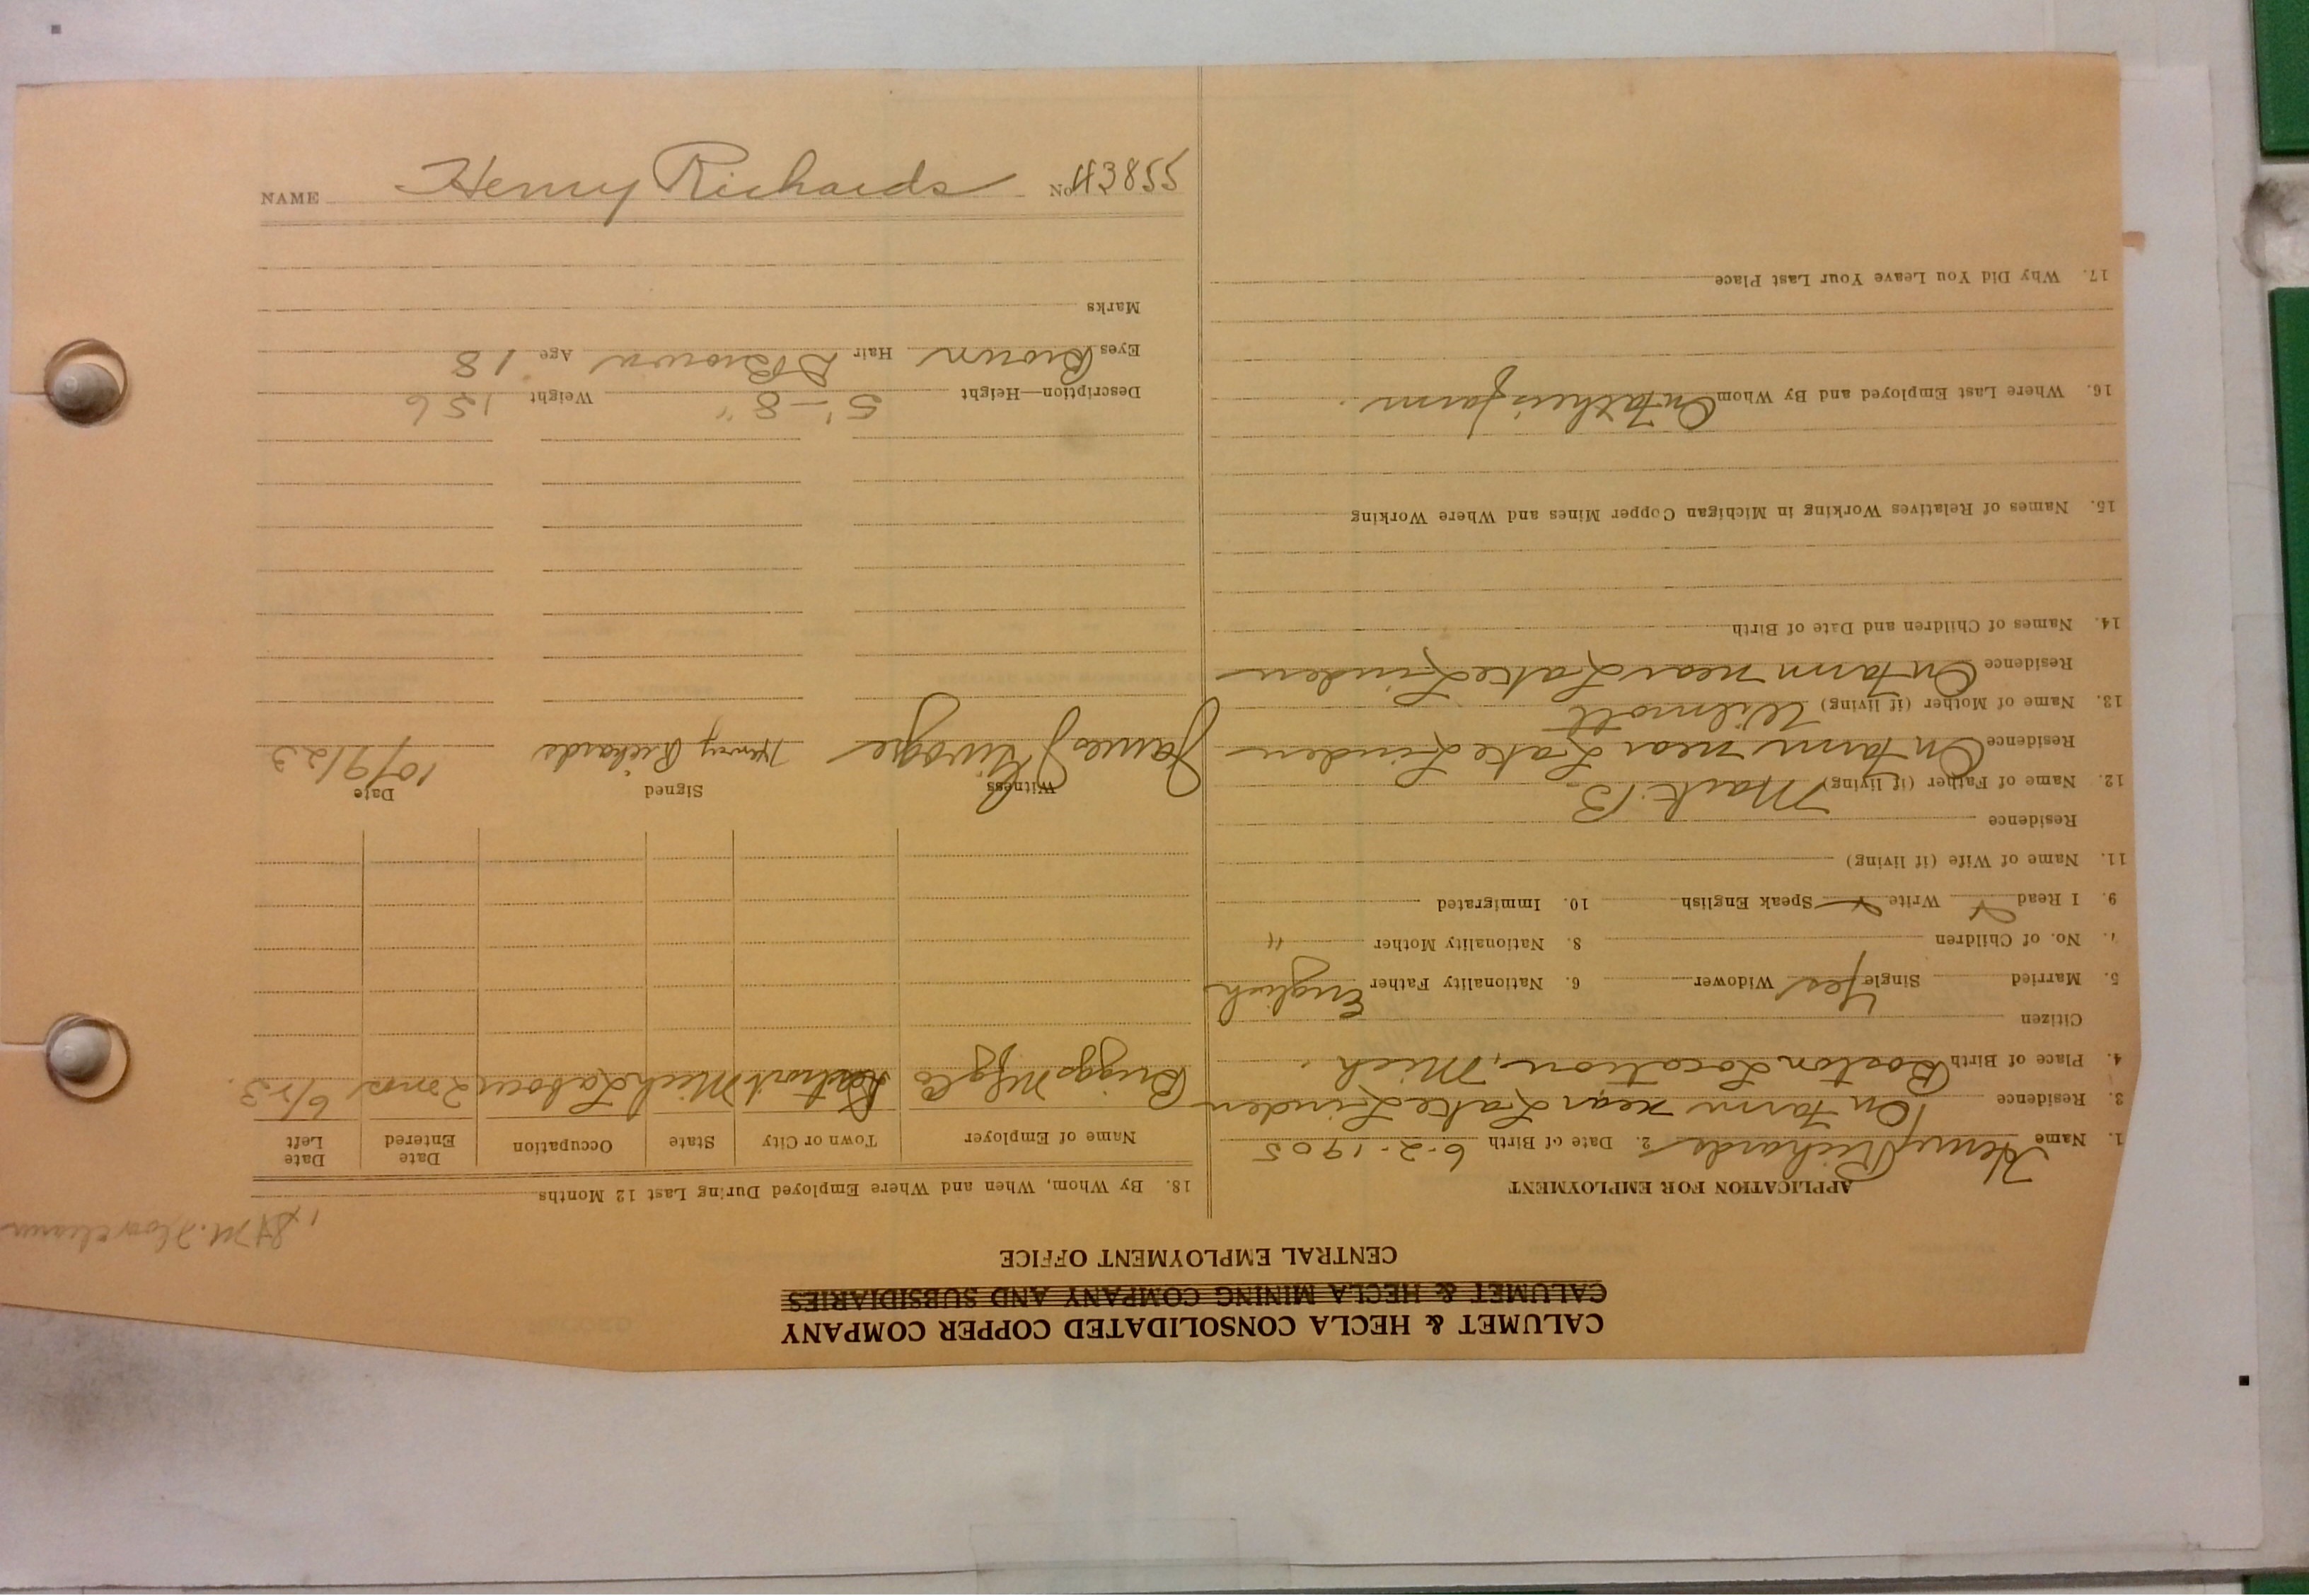 CALUMET & HECLA CONSOLIDATED COPPER COMPANY
CALUMET & HECLA MINING COMPANY AND SUBSIDIARIES
CENTRAL EMPLOYMENT OFFICE
APPLICATION FOR EMPLOYMENT
1. Name Henry Richards 2. Date of Birth 6-2-1905
3. Residence On farm near Lake Linden
4. Place of Birth Boston Location, Mich.
Citizen
5. Married Single Yes Widower 6. Nationality Father English
7. No. of Children 8. Nationality Mother "
9. I Read Write Speak English 10. Immigrated
11. Name of Wife (if living)
Residence
12. Name of Father (if living) Mark B
Residence On farm near Lake Linden
13. Name of Mother (if living) Wilmott
Residence On farm near Lake Linden
14. Names of Children and Date of Birth
15. Names of Relatives Working in Michigan Copper Mines and Where Working
16. Where Last Employed and By Whom On fathers farm.
17. Why Did You Leave Your Last Place
18. By Whom, When and Where Employed During Last 12 Months
Name of Employer Town or City State Occupation Date Entered Date Left
Briggs Mfg Co Detroit Mich Labour 2 mos 6/23.
Witness Signed Date
James Henry Richards 10/9/23
Description—Height 5'-8" Weight 156
Eyes Brown Hair D Brown Age 18
Marks
NAME Henry Richards No. 43855